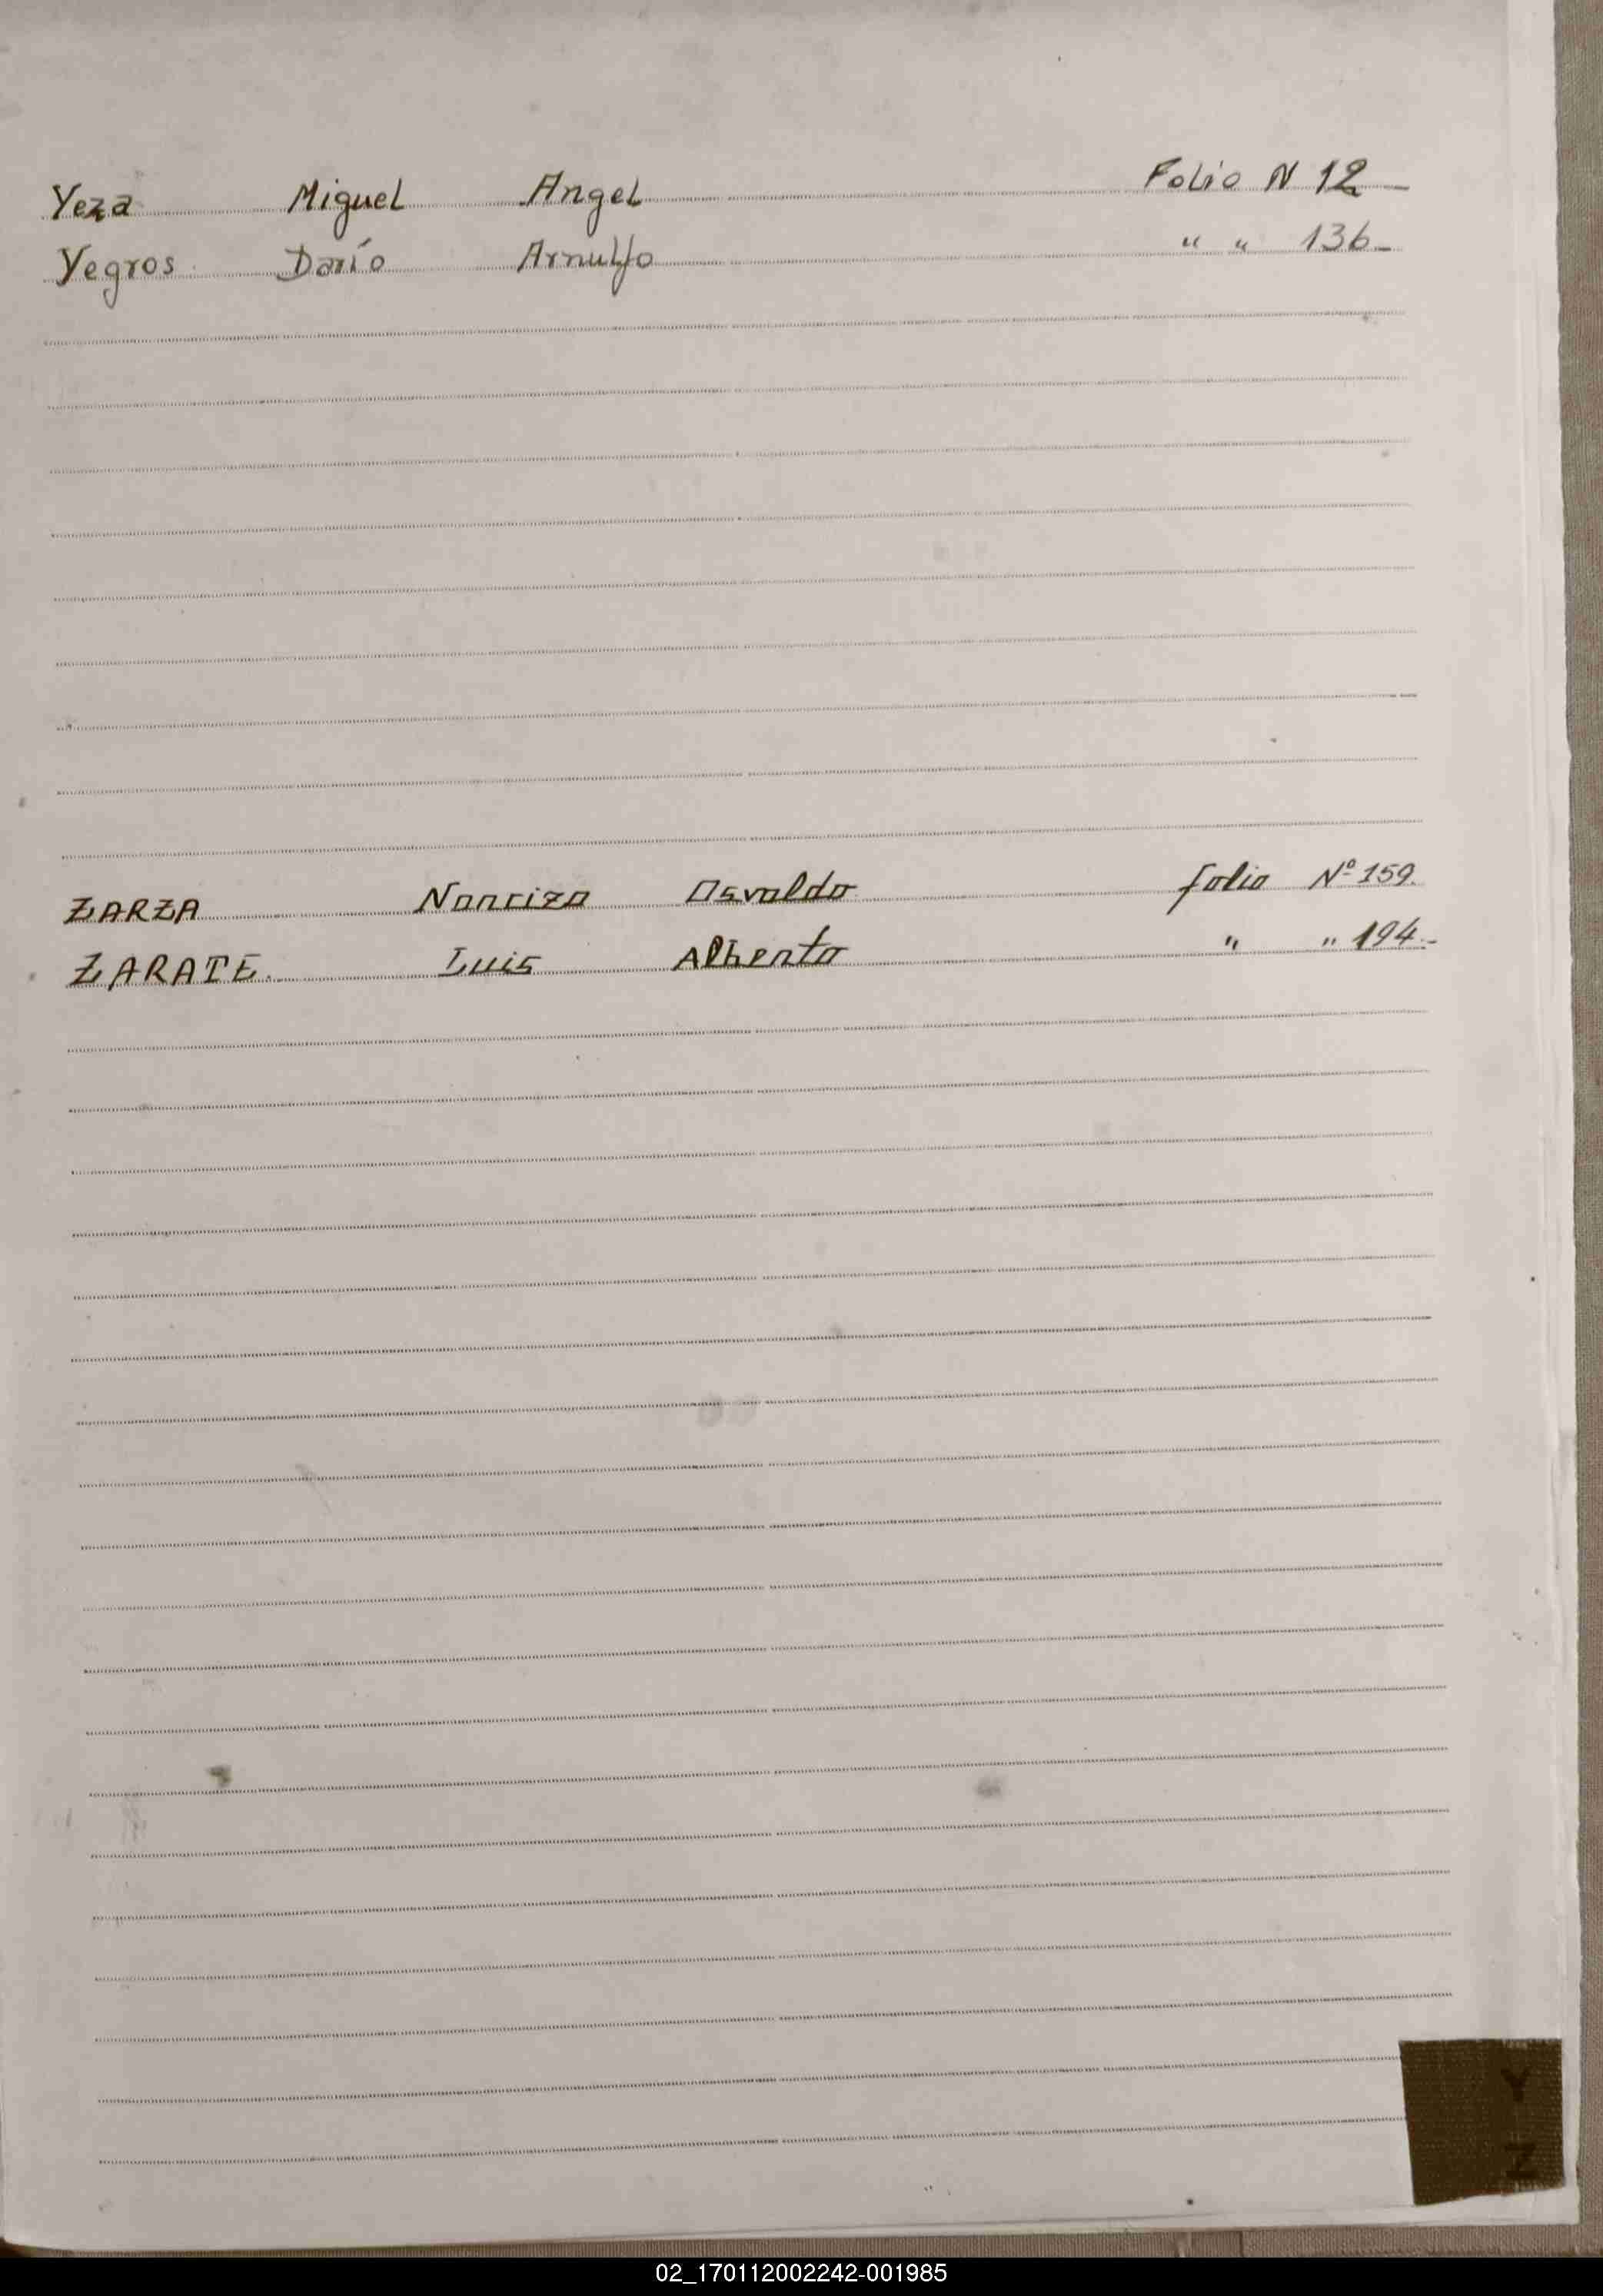 Yeza Miguel Angel Folio N 12
Yegros Darío Arnulfo " " 136
ZARZA Narcizo Osvaldo folio Nº 159.
ZARATE. Luis Alberto " " 194.
Y
Z
02_170112002242-001985